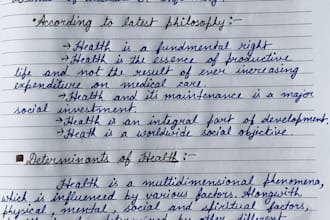 "According to latest philosophy:-
→Health is a fundmental right
→Health is the essence of productive
life and not the result of ever increasing
expenditure on medical care.
→Health and its maintenance is a major
social investment.
→Health is an integral part of development.
→Heath is a worldwide social objective.
Determinants of Health:-
Health is a multidimensional phenomena,
which is influenced by various factors. Alongwith
physical, mental, social and spiritual factors,
determined by other different